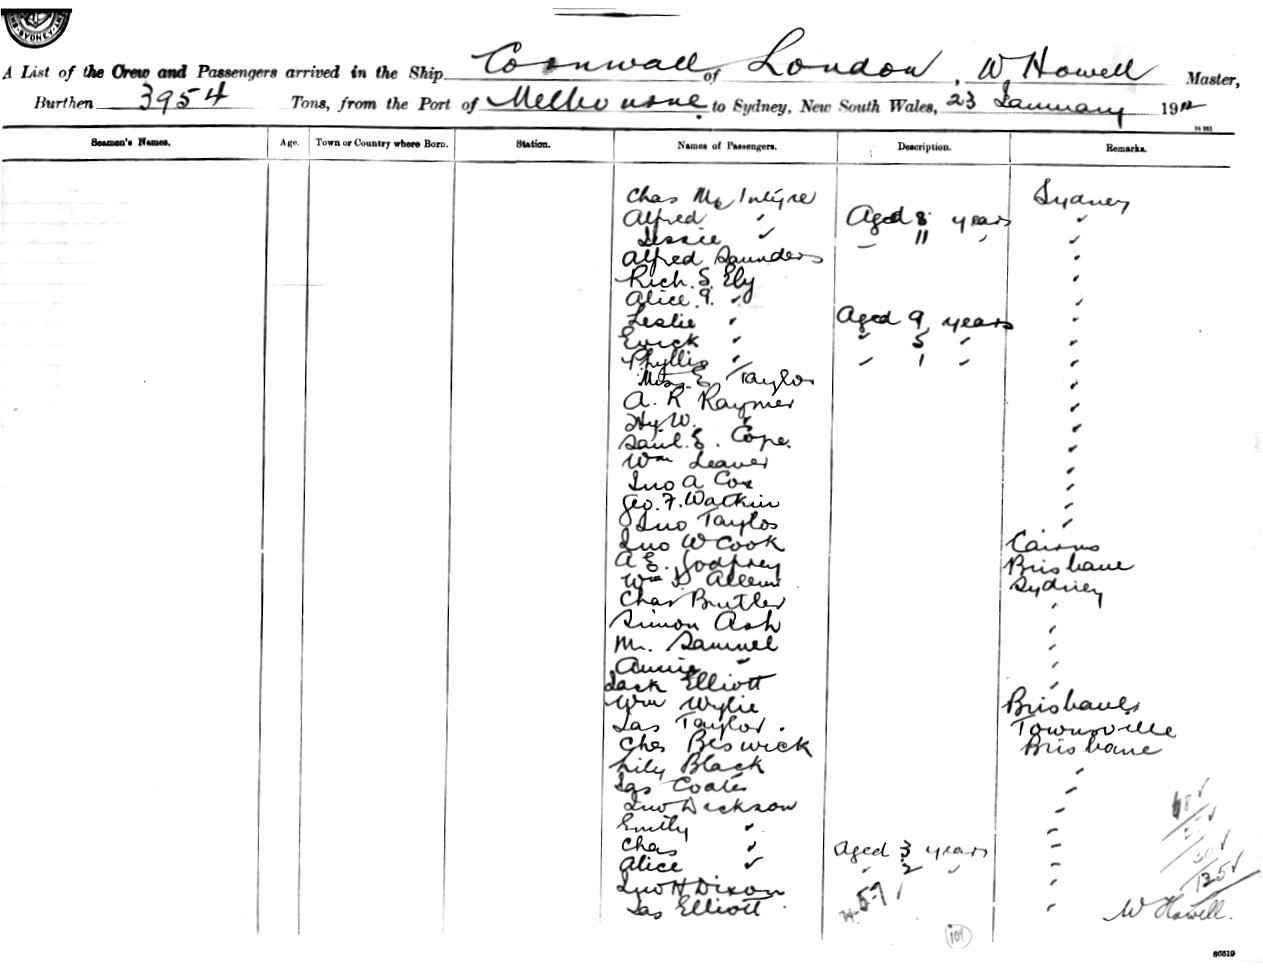 SYDNEY
A List of the Crew and Passengers arrived in the Ship Cornwall of London, W Howell Master,
Burthen 3954 Tons, from the Port of Melbourne to Sydney, New South Wales, 23 January 1912
Seamen's Names. Age. Town or Country where Born. Station. Names of Passengers. Description. Remarks.
Chas McIntyre Sydney
Alfred " Aged 8 years "
Jessie " " 11 " "
Alfred Saunders "
Rich. S. Ely "
Alice G. " "
Leslie " Aged 9 years "
Erick " " 5 " "
Phyllis " " 1 " "
E Taylor "
A. R Raymer "
Hy. W. " "
Saul. E. Cope. "
Wm Leaver "
Jno A Cox "
Geo. F. Watkin "
Jno Taylor "
Jno W Cook Cairns
A E. Godfrey Brisbane
Wm Allen Sydney
Chas Butler "
Simon Ash "
M. Samuel "
Annie " "
Jack Elliott "
Wm Wylie Brisbane
Jas Taylor. Townsville
Chas Beswick Brisbane
Lily Black "
Jas Coates "
Jno Dickson "
Emily " "
Chas " Aged 3 years "
Alice " " 2 " "
Jno H Dixon "
Jas Elliott "
125
W Howell.
86519